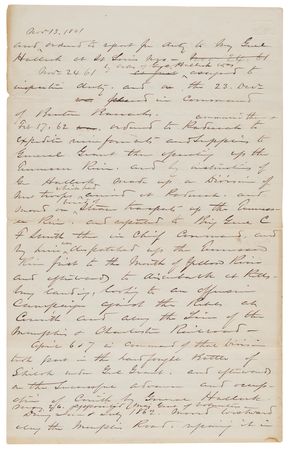 Nov. 13, 1861
and ordered to report for duty to Maj Genl
Halleck at St Louis
Nov 24. 61 assigned to
inspection duty, and on the 23. Decr
in command
of Benton Barracks.
Feb 17. 62 ordered to Paducah to
expedite reinforcements and supplies to
General Grant then operating up the
Tennessee River. and by instructions of
Gn Halleck made up a Division of
new troops which had arrived at Paducah and
moved on Steam transport up the Tennes-
see River and reported to Brig Genl C
F Smith then in Chief Command, and
by him was dispatched up the Tennessee
River first to the Mouth of Yellow River
and afterwards to disembark at Pitts-
burg Landing, looking to an offensive
Campaign against the Rebels at
Corinth and along the Line of the
Memphis & Charleston Railroad—
April 6 & 7 in command of that Division
took part in the hard fought Battle of
Shiloh under Genl Grant. and afterwards
in the successive advance and occupa-
tion of Corinth by General Halleck.
Maj Genl of Volunteers
During June & July 1862. Moved westward
along the Memphis Road, repairing it in